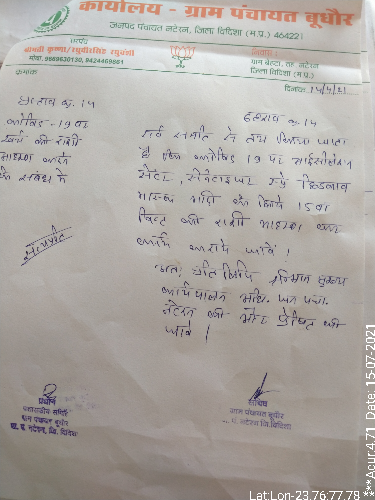 कार्यालय - ग्राम पंचायत बूधौर
जनपद पंचायत नटेरन, जिला विदिशा (म.प्र.) 464221
सरपंच
श्रीमती कृष्णा/रघुवीरसिंह रघुवंशी
मोबा. 9869630130, 9424469861
निवास :
ग्राम सेऊटा, तह. नटेरन
जिला विदिशा (म.प्र.)
क्रमांक
दिनांक 14/4/21
प्रस्ताव क्र. 14
कोविड - 19 पर
खर्च की राशी
आहरण करने
के संबंध में
प्रस्ताव क्र. 14
सर्व सम्मति से तय किया जाता
है कि कोविड 19 पर
सेंटर, सेनेटाइजर एवं छिड़काव
मास्क आदि के लिये 15 वा
वित्त की राशी आहरण कर
कार्य कराये जावें।
अतः प्रतिलिपि श्रीमान मुख्य
कार्यपालन अधि. जन. पंचा.
नटेरन की ओर प्रेषित की
जावे।
प्रधान
प्रशासकीय समिति
ग्राम पंचायत बूधौर
ज. प. नटेरन, जि. विदिशा
सचिव
ग्राम पंचायत बूधौर
ज. प. नटेरन जि. विदिशा
Lat:Lon-23.76:77.78
***Acur:4.71 Date: 15-07-2021